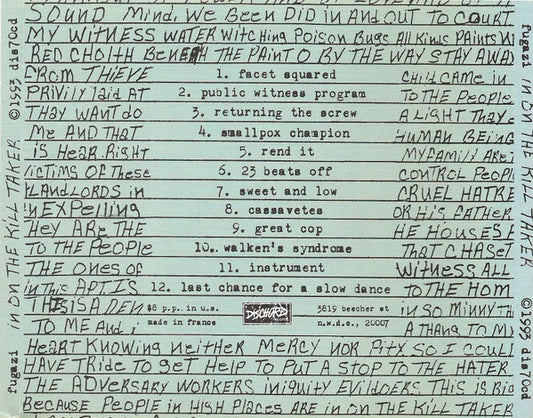 SOUND Mind. We BEEN DID in AND OUT TO COURT
MY WiTNESS WATER WiTCHing POiSON BUGS All KiNDS PAiNTS
RED CHOlTH BENEATH THE PAiNT O BY THE WAY STAY AWAY
FROM THIEVE 1. facet squared CHilD CAME iN
PRiViLY lAiD AT 2. public witness program TO THE PEOPLE
THAY WANT DO 3. returning the screw A LIGHT THAY
ME AND THAT 4. smallpox champion HUMAN BEING
iS HEAR. RiGHT 5. rend it MY FAMiLY ARE
ViCTiMS OF THESE 6. 23 beats off CONTROL PEOPL
LANDLORDS iN 7. sweet and low CRUEL HATRE
iN EXPElling 8. cassavetes OR HiS FATHER
HEY ARE THE 9. great cop HE HOUSES
TO THE PEOPLE 10. walken's syndrome THAT CHASET
THE ONES OF 11. instrument WiTNESS ALL
iN THiS APT iS 12. last chance for a slow dance TO THE HOM
THiS iS A DEN $8 p.p. in u.s. DISCHORD 3819 beecher st iN SO MiNNY TH
TO ME AND i made in france n.w.d.c., 20007 A THANG TO MY
HEART KNOWiNG NEiTHER MERCY NOR PiTY SO I COULD
HAVE TRiDE TO GET HELP TO PUT A STOP TO THE HATER
THE ADVERSARY WORKERS iNiQUiTY EViLDOERS THiS iS
BECAUSE PEOPLE iN HiGH PLACES ARE iN ON THE KiLL TAKER
fugazi iN ON THE KiLL TAKER ©1993 dis70cd
fugazi iN ON THE KiLL TAKER ©1993 dis70cd